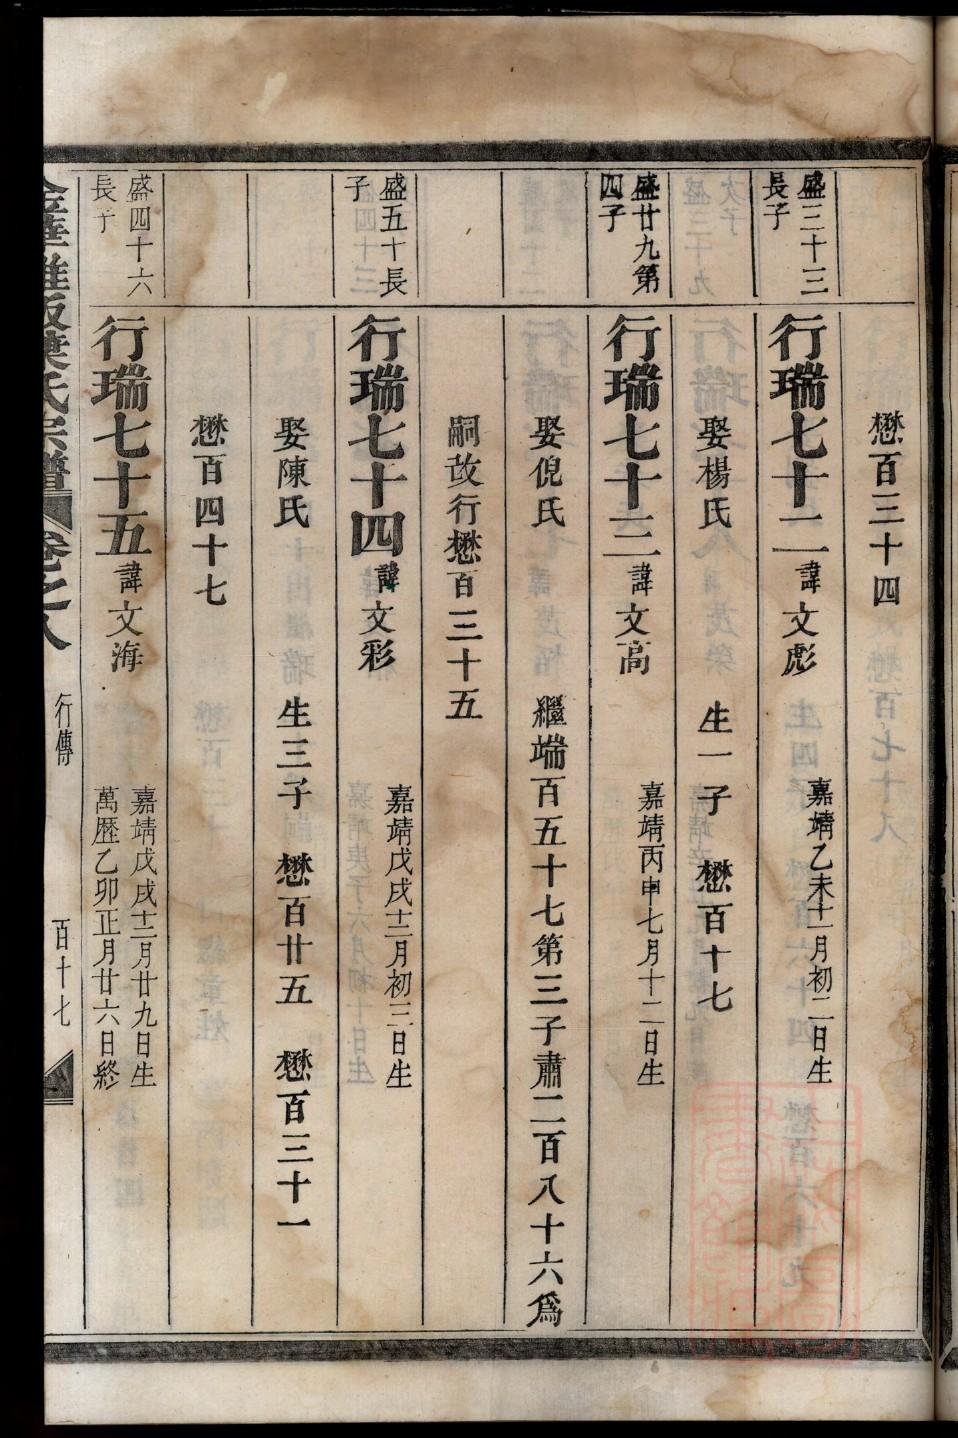 懋百三十四
盛三十三長子
行瑞七十二諱文彪 嘉靖乙未十一月初二日生
娶楊氏 生一子 懋百十七
盛廿九第四子
行瑞七十三諱文高 嘉靖丙申七月十二日生
娶倪氏 繼端百五十七第三子肅二百八十六為
嗣故行懋百三十五
盛五十長子
行瑞七十四諱文彩 嘉靖戊戌十二月初三日生
娶陳氏 生三子 懋百廿五 懋百三十一
懋百四十七
盛四十六長子
行瑞七十五諱文海 嘉靖戊戌十二月廿九日生
萬歷乙卯正月廿六日終
氏宗譜 卷之八 行傳 百十七